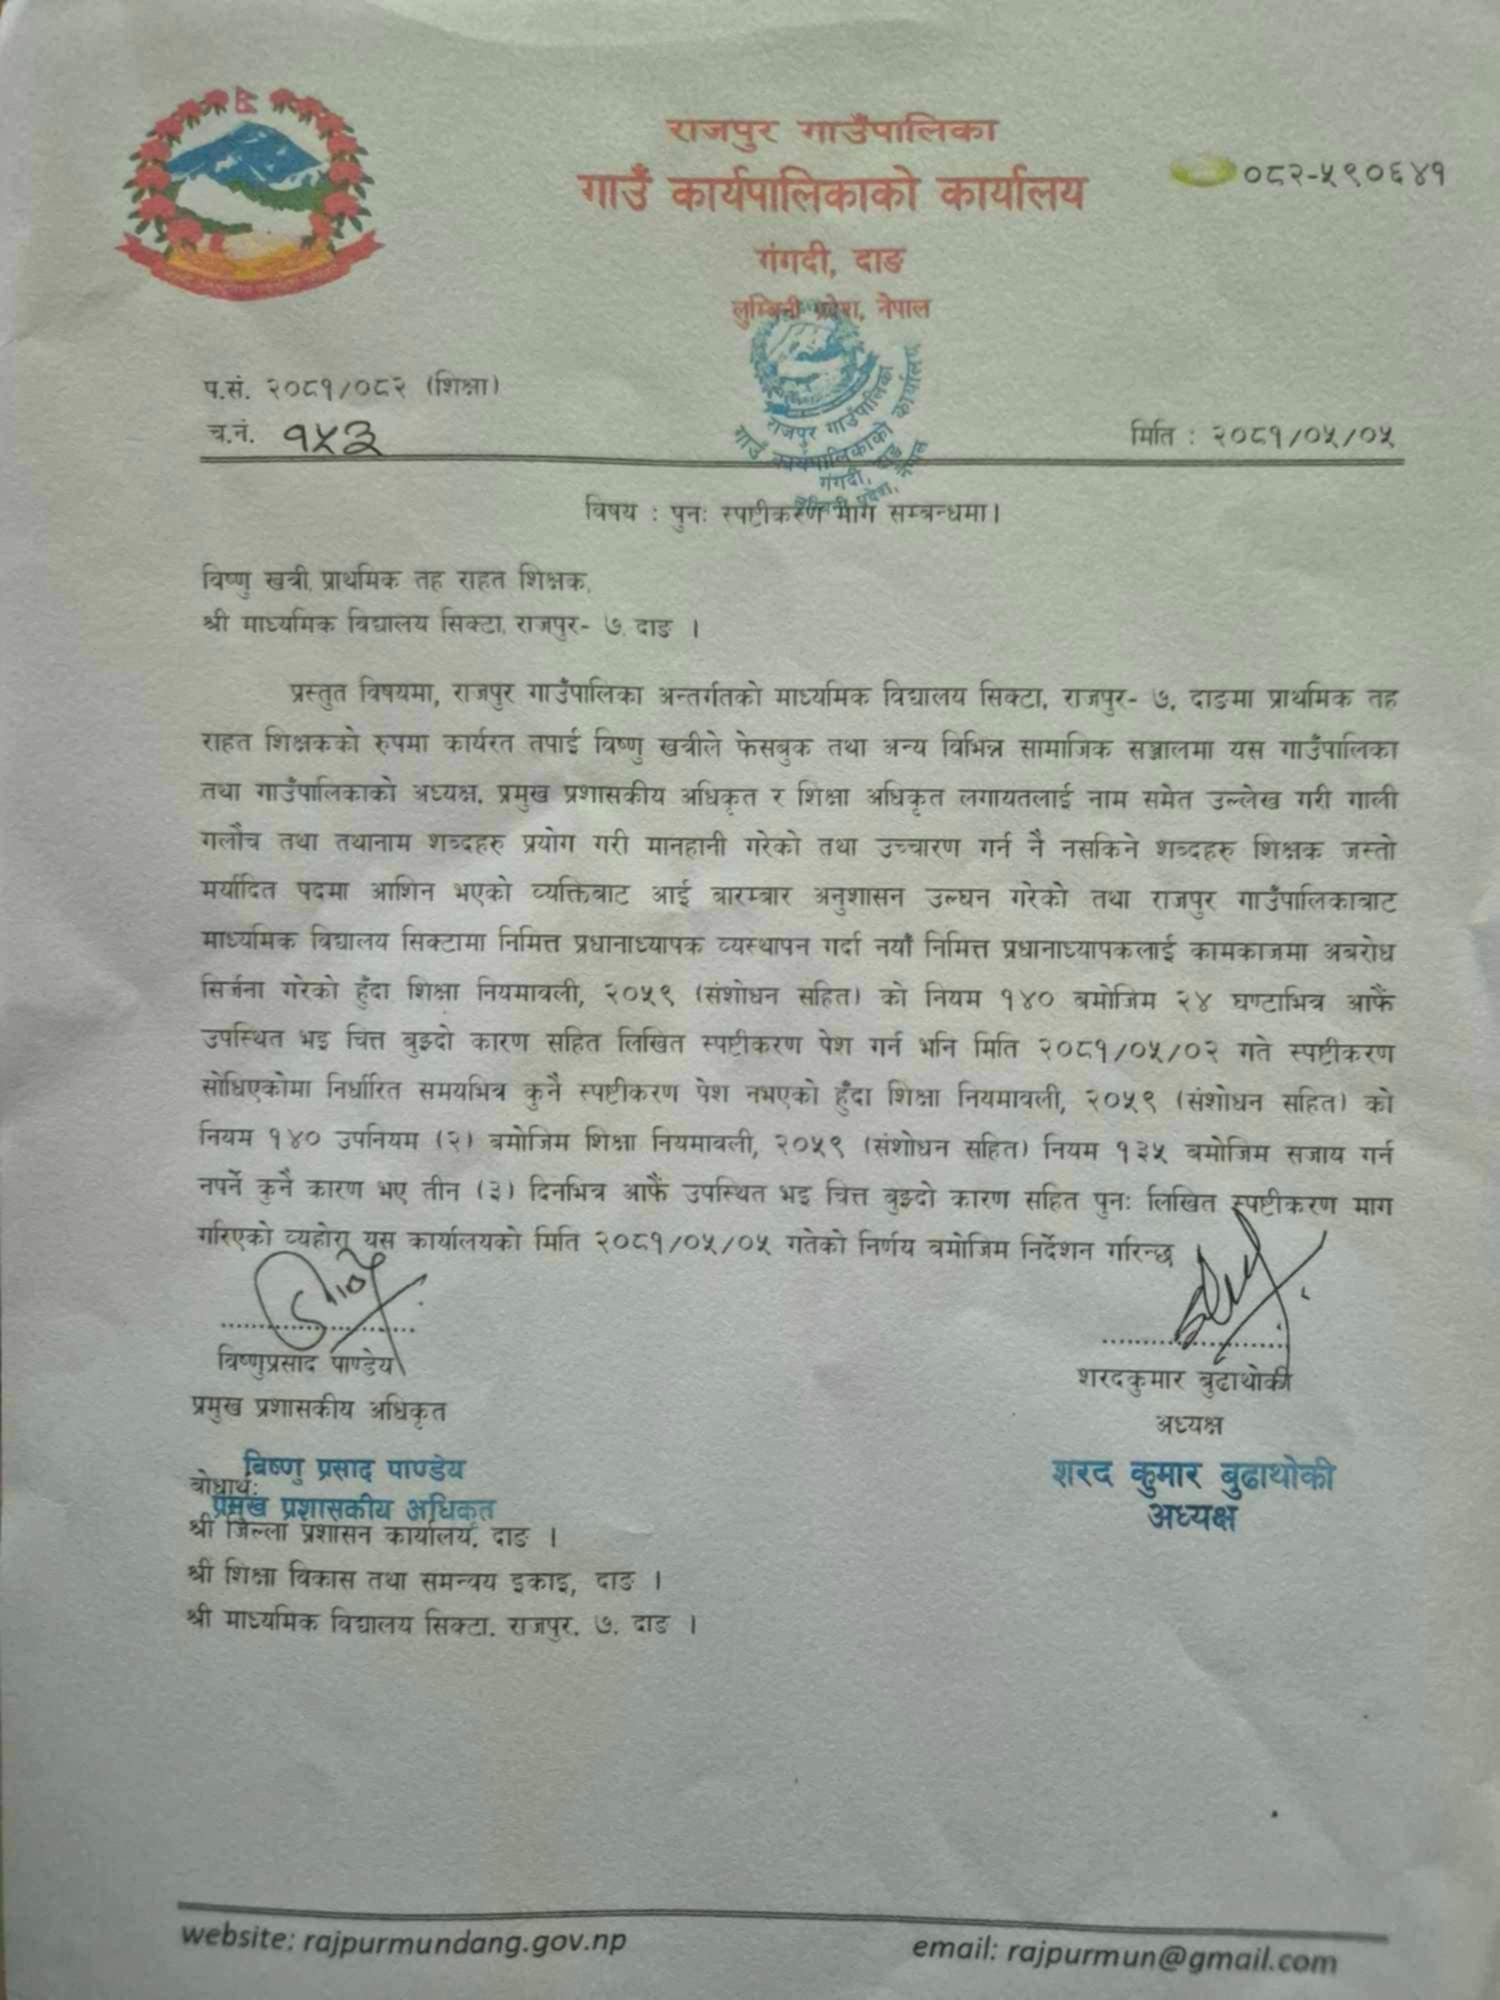 राजपुर गाउँपालिका
गाउँ कार्यपालिकाको कार्यालय
०८२-५९०६४१
गंगदी, दाङ
लुम्बिनी प्रदेश, नेपाल
राजपुर गाउँपालिका
गाउँ कार्यपालिकाको कार्यालय
गंगदी, दाङ
लुम्बिनी प्रदेश, नेपाल
प.सं. २०८१/०८२ (शिक्षा)
च.नं. १५३
मिति : २०८१/०५/०५
विषय : पुनः स्पष्टीकरण माग सम्बन्धमा।
विष्णु खत्री, प्राथमिक तह राहत शिक्षक,
श्री माध्यमिक विद्यालय सिक्टा, राजपुर- ७, दाङ ।
प्रस्तुत विषयमा, राजपुर गाउँपालिका अन्तर्गतको माध्यमिक विद्यालय सिक्टा, राजपुर- ७, दाङमा प्राथमिक तह
राहत शिक्षकको रुपमा कार्यरत तपाई विष्णु खत्रीले फेसबुक तथा अन्य विभिन्न सामाजिक सञ्जालमा यस गाउँपालिका
तथा गाउँपालिकाको अध्यक्ष, प्रमुख प्रशासकीय अधिकृत र शिक्षा अधिकृत लगायतलाई नाम समेत उल्लेख गरी गाली
गलौच तथा तथानाम शब्दहरु प्रयोग गरी मानहानी गरेको तथा उच्चारण गर्न नै नसकिने शब्दहरु शिक्षक जस्तो
मर्यादित पदमा आशिन भएको व्यक्तिबाट आई बारम्बार अनुशासन उल्घन गरेको तथा राजपुर गाउँपालिकाबाट
माध्यमिक विद्यालय सिक्टामा निमित्त प्रधानाध्यापक व्यस्थापन गर्दा नयाँ निमित्त प्रधानाध्यापकलाई कामकाजमा अबरोध
सिर्जना गरेको हुँदा शिक्षा नियमावली, २०५९ (संशोधन सहित) को नियम १४० बमोजिम २४ घण्टाभित्र आफैं
उपस्थित भइ चित्त बुझ्दो कारण सहित लिखित स्पष्टीकरण पेश गर्न भनि मिति २०८१/०५/०२ गते स्पष्टीकरण
सोधिएकोमा निर्धारित समयभित्र कुनै स्पष्टीकरण पेश नभएको हुँदा शिक्षा नियमावली, २०५९ (संशोधन सहित) को
नियम १४० उपनियम (२) बमोजिम शिक्षा नियमावली, २०५९ (संशोधन सहित) नियम १३५ बमोजिम सजाय गर्न
नपर्ने कुनै कारण भए तीन (३) दिनभित्र आफैं उपस्थित भइ चित्त बुझ्दो कारण सहित पुनः लिखित स्पष्टीकरण माग
गरिएको व्यहोरा यस कार्यालयको मिति २०८१/०५/०५ गतेको निर्णय बमोजिम निर्देशन गरिन्छ
विष्णुप्रसाद पाण्डेय
प्रमुख प्रशासकीय अधिकृत
विष्णु प्रसाद पाण्डेय
प्रमुख प्रशासकीय अधिकृत
शरदकुमार बुढाथोकी
अध्यक्ष
शरद कुमार बुढाथोकी
अध्यक्ष
बोधार्थ:
श्री जिल्ला प्रशासन कार्यालय, दाङ ।
श्री शिक्षा विकास तथा समन्वय इकाइ, दाङ ।
श्री माध्यमिक विद्यालय सिक्टा, राजपुर, ७, दाङ ।
website: rajpurmundang.gov.np
email: rajpurmun@gmail.com